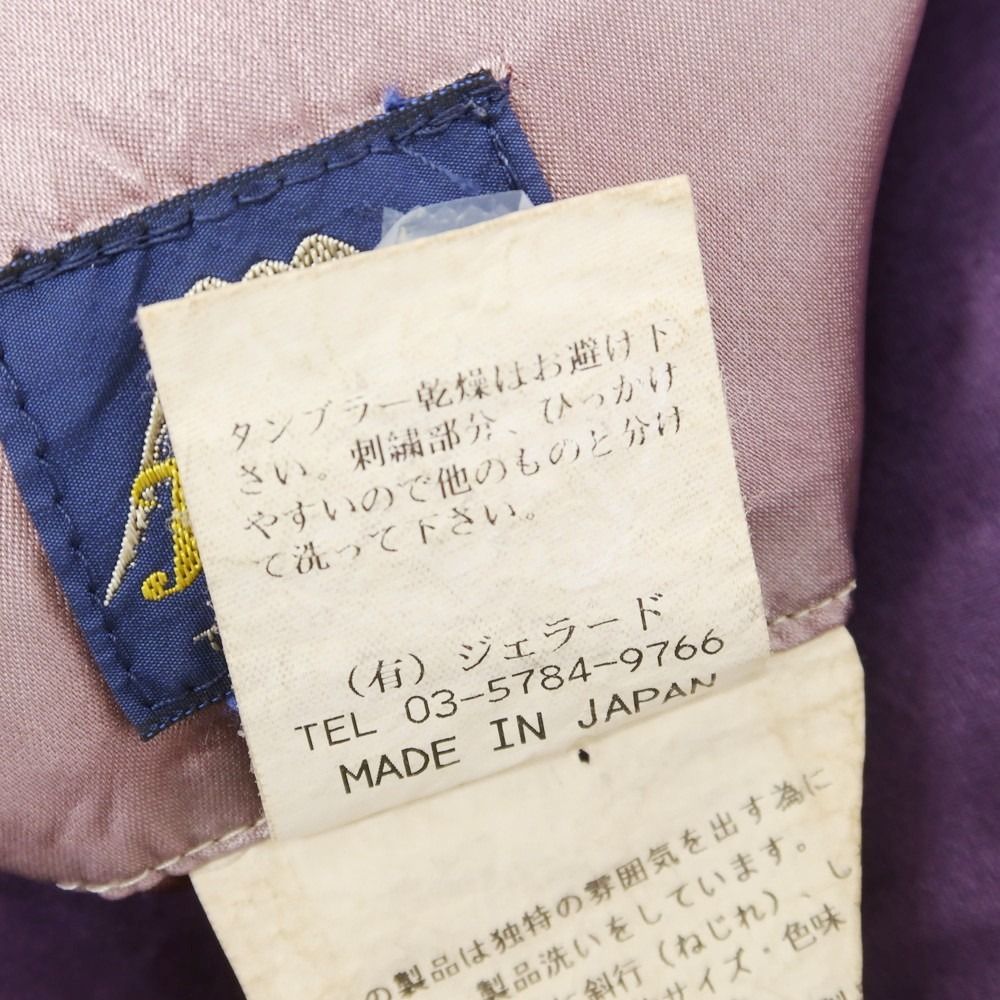 タンブラー乾燥はお避け下
さい。刺繍部分、ひっかけ
やすいので他のものと分け
て洗って下さい。
(有)ジェラード
TEL 03-5784-9766
MADE IN JAPAN
の製品は独特の雰囲気を出す為に
製品洗いをしています。
斜行(ねじれ)、し
サイズ・色味